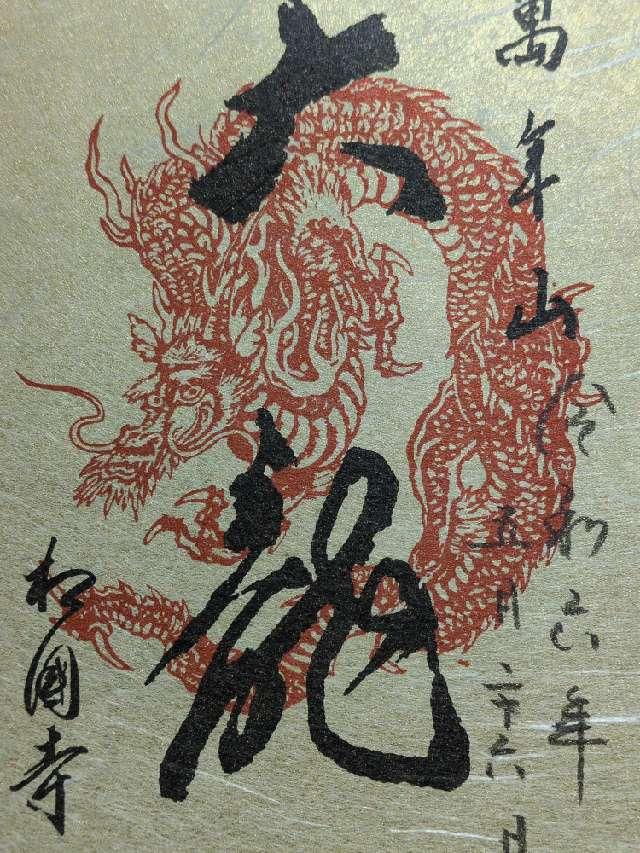 萬年山
令和六年
五月二十六日
六龍
相國寺